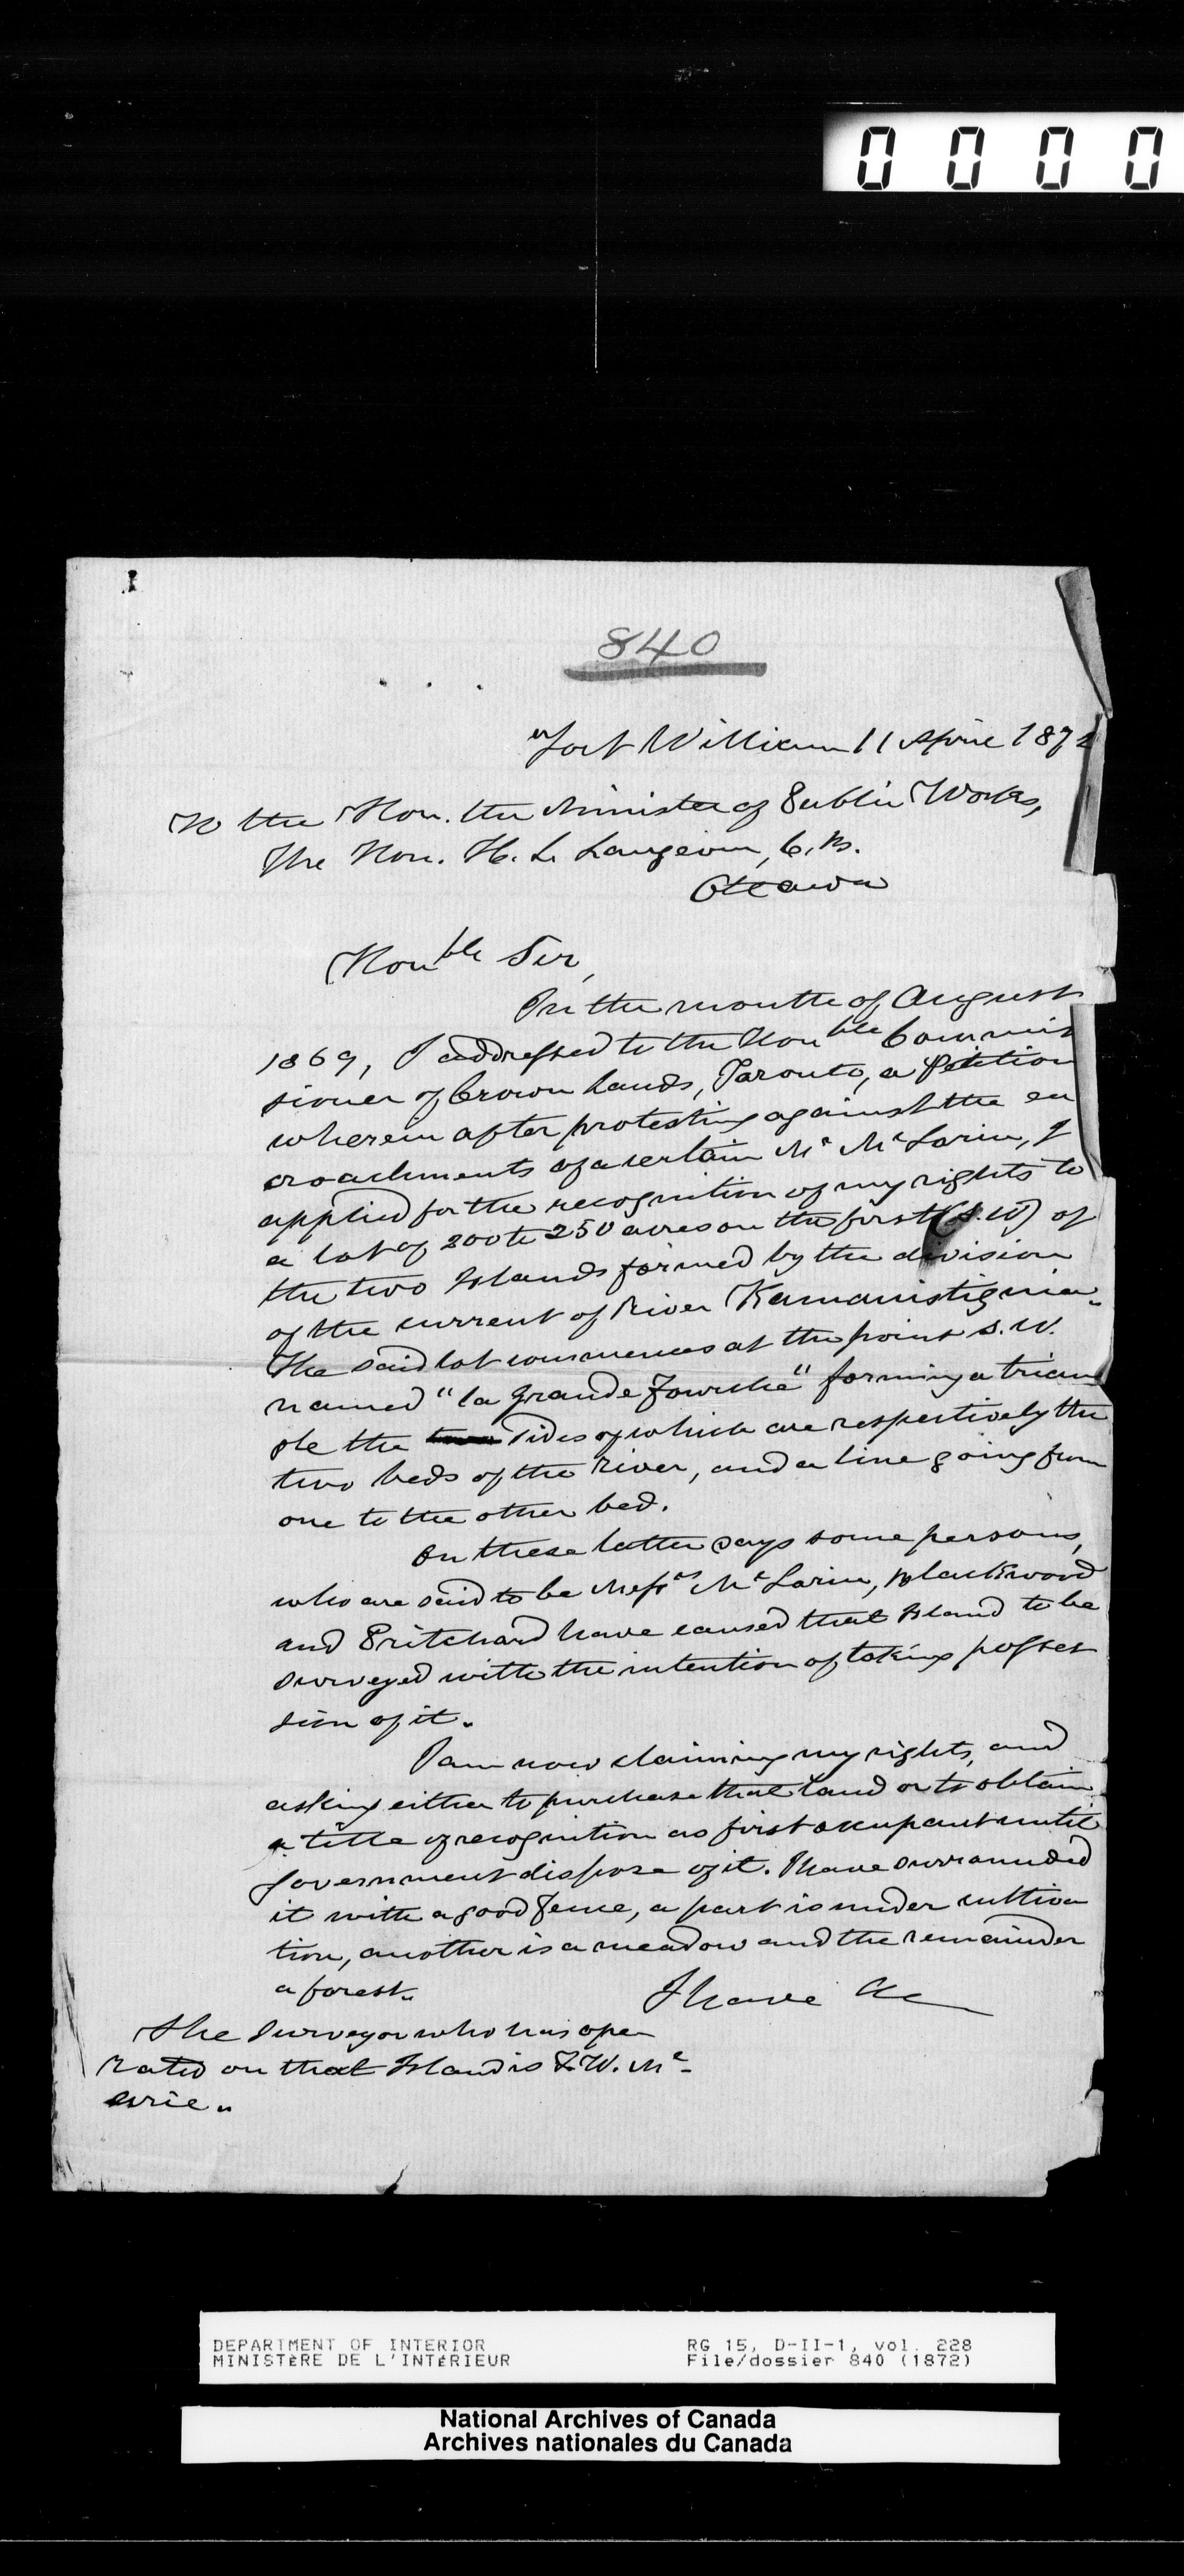 0 0 0 0
840
Fort William 11 April 1872
To the Hon. the Minister of Public Works,
The Hon. H. L. Langevin, C.B.
Ottawa
Honble Sir,
In the month of August
1869, I addressed to the Honble Commis
sioner of Crown Lands, Toronto, a Petition
wherein after protesting against the en
croachments of a certain Mr McLarin, I
applied for the recognition of my rights to
a lot of 200 to 250 acres on the first (S.W) of
the two Islands formed by the division
of the current of River Kamanistiguia.
The said lot commences at the point S.W.
named "la Grande Fourche" forming a trian
gle the sides of which are respectively the
two beds of the River, and a line going from
one to the other bed.
On these latter days some persons,
who are said to be Messrs McLarin, Blackwood
and Pritchard have caused that Island to be
surveyed with the intention of taking posses
sion of it.
I am now claiming my rights, and
asking either to purchase that land or to obtain
a title of recognition as first occupant until
Government dispose of it. I have surrounded
it with a good fence, a part is under cultiva
tion, another is a meadow and the remainder
a forest.
I have &c
The Surveyor who has ope
rated on that Island is W. Mc
DEPARTMENT OF INTERIOR
MINISTÈRE DE L'INTÉRIEUR
RG 15, D-II-1, vol. 228
File/dossier 840 (1872)
National Archives of Canada
Archives nationales du Canada